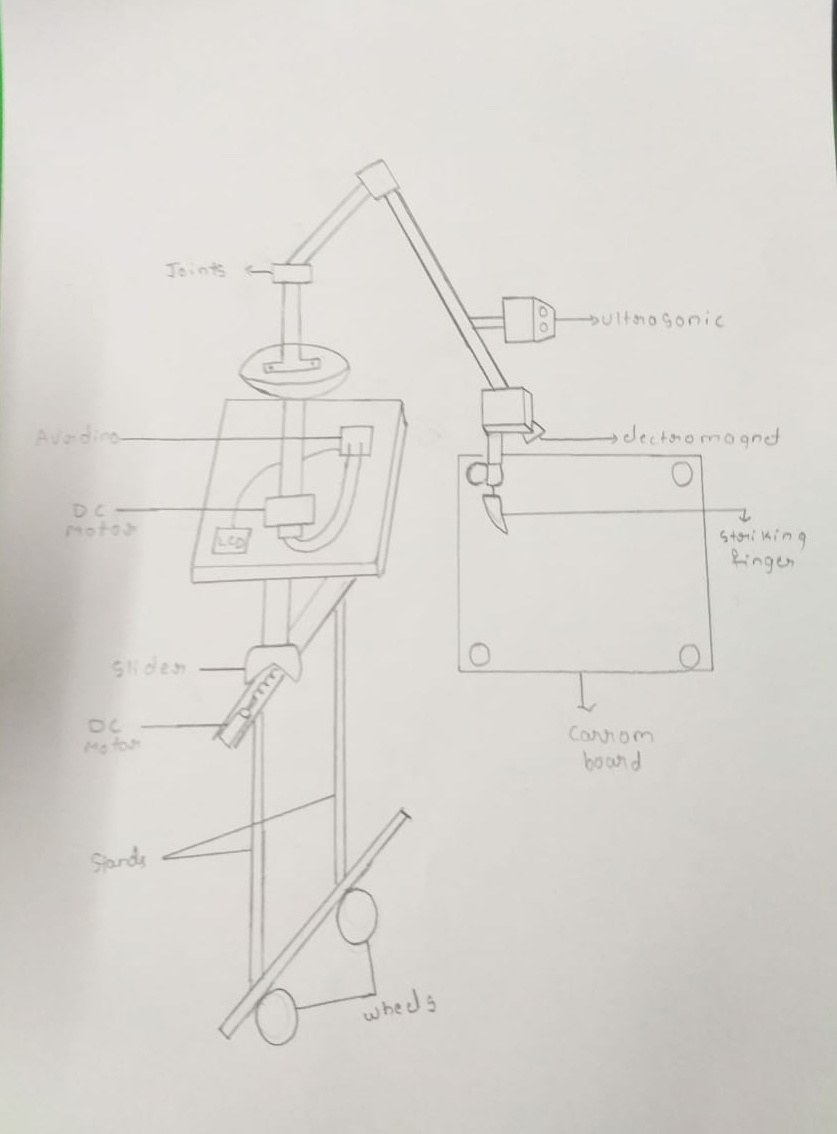 Joints
Ultrasonic
Avrdino
electromagnet
DC
Motor
LCD
striking
finger
Slider
DC
Motor
Carrom
board
Stands
wheels